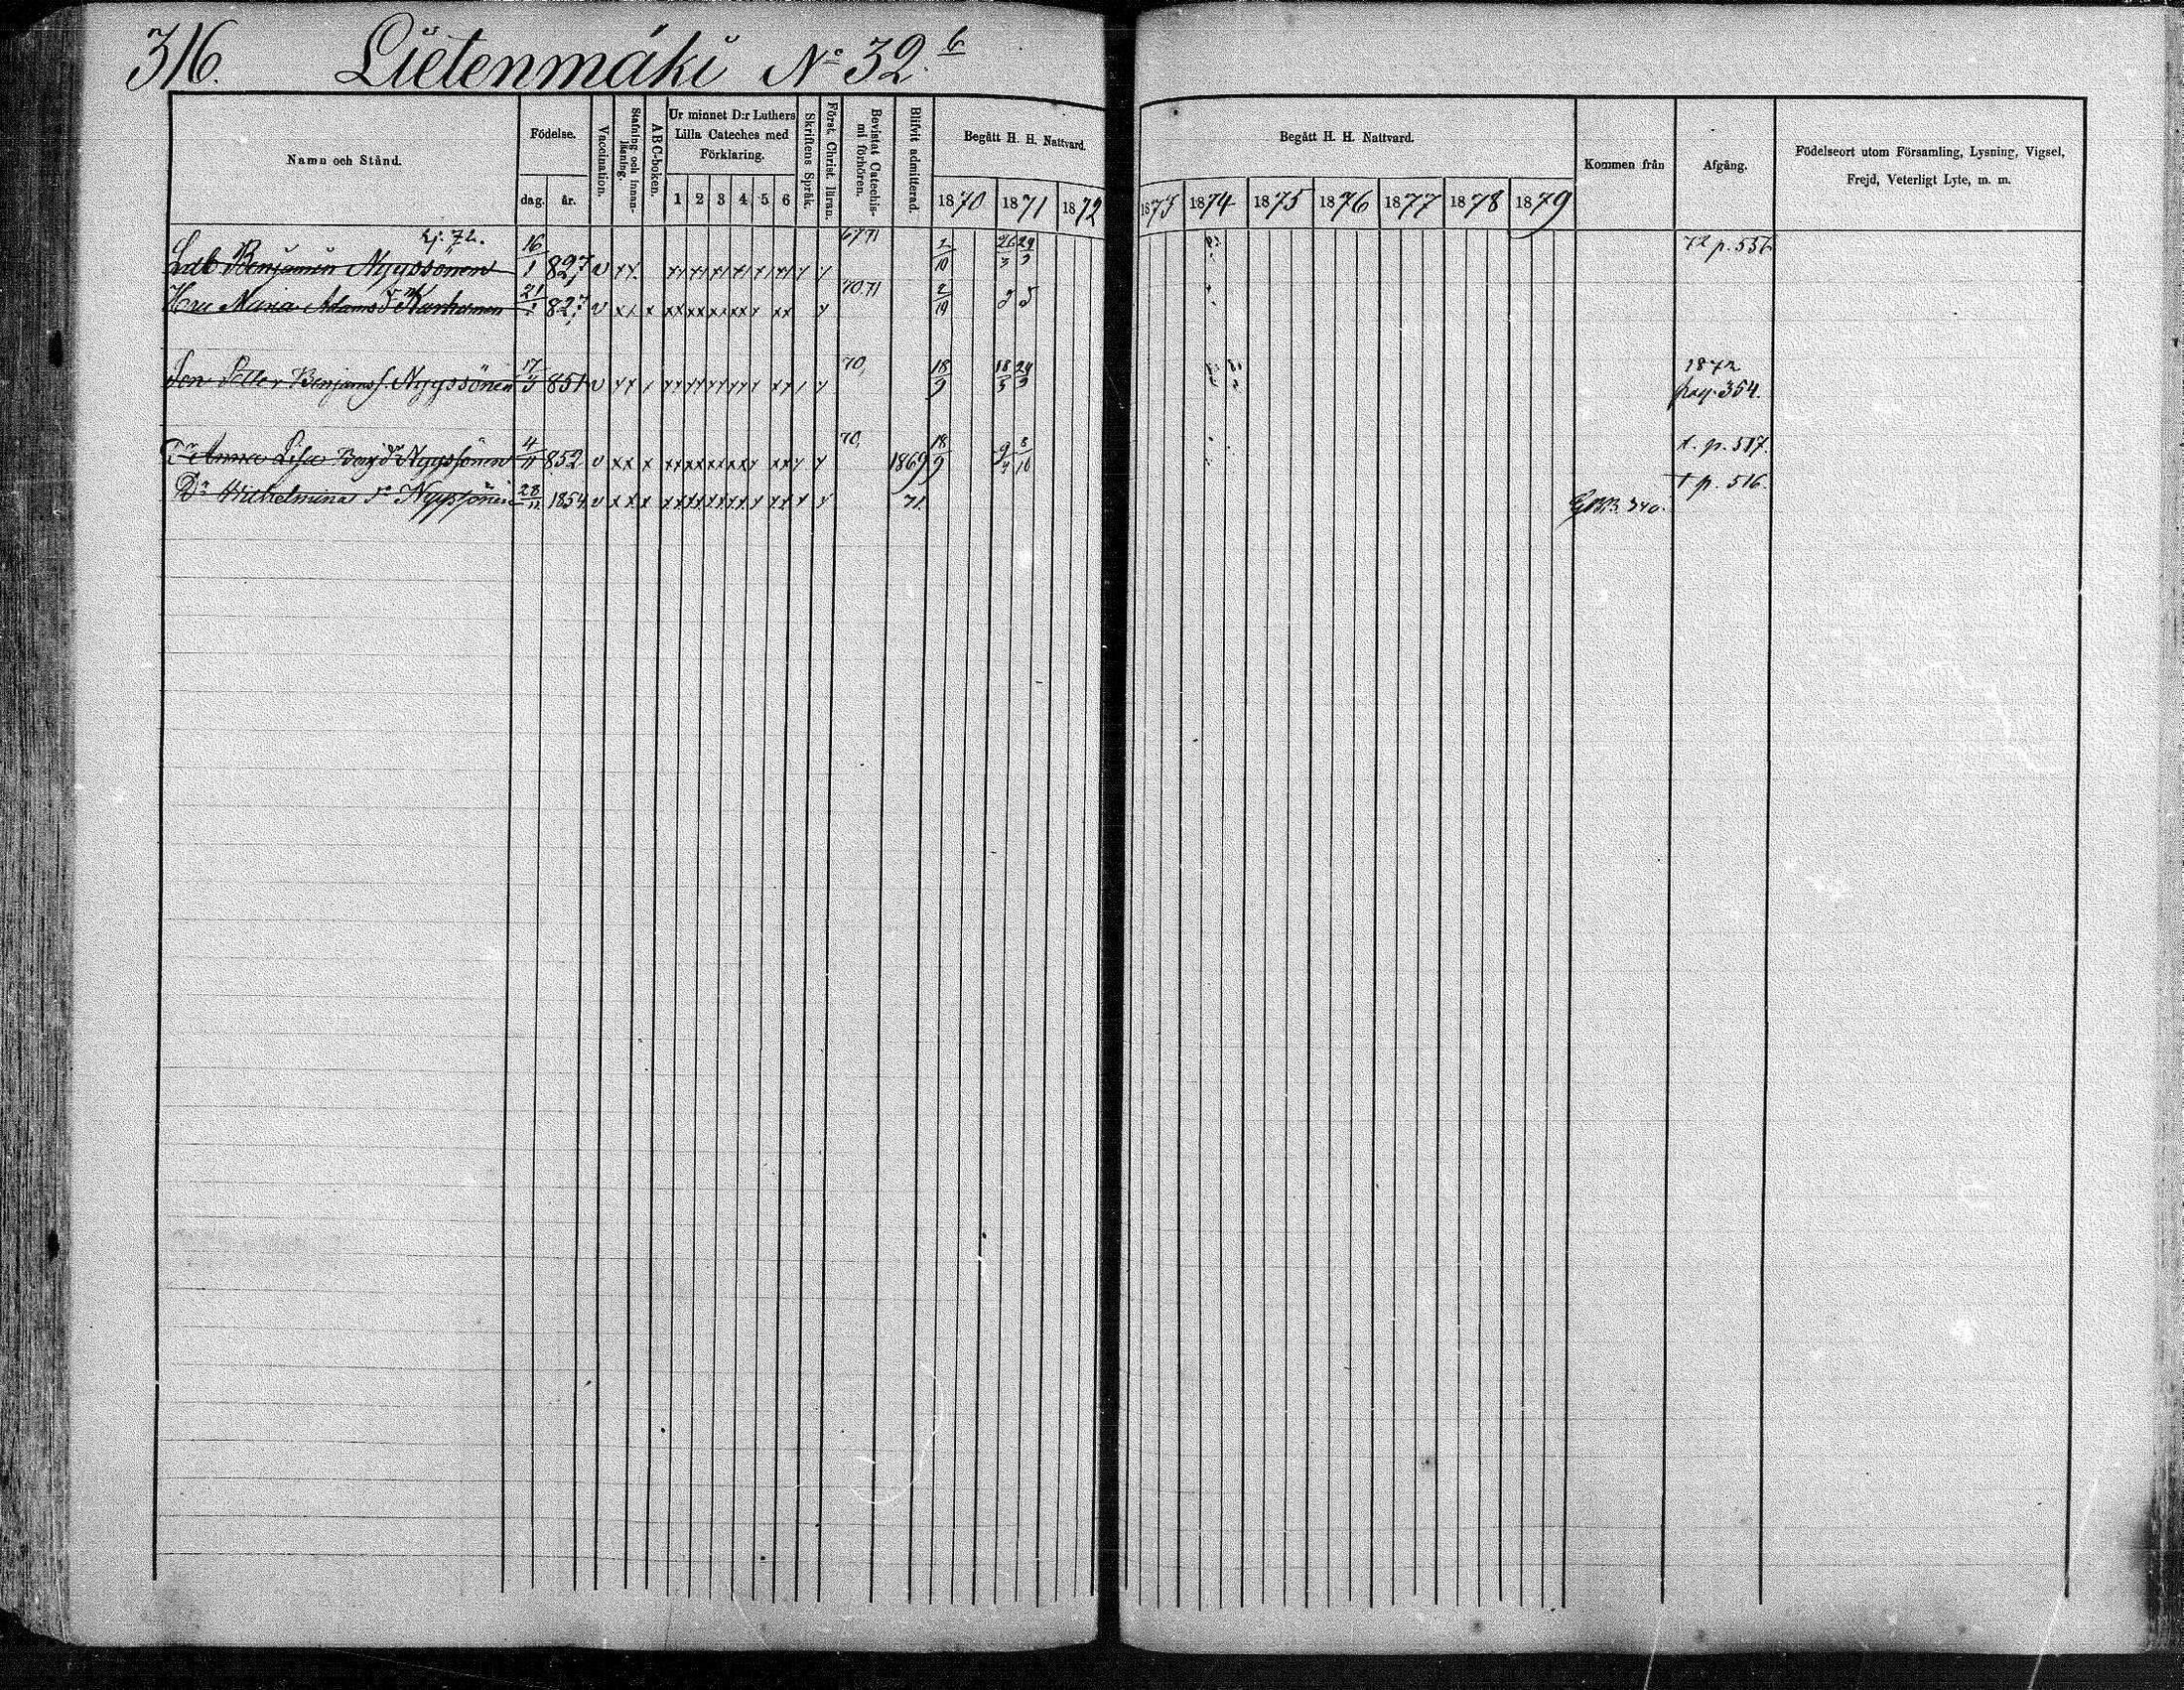 316. Lietenmäki No 32. b
Namn och Stånd.
Födelse.
dag. år.
Vaccination.
Stafning och innanläsning.
ABC-boken.
Ur minnet D:r Luthers
Lilla Cateches med
Förklaring.
1 2 3 4 5 6
Skriftens Språk.
Först. Christ. läran.
Bevistat Catechismi förhören.
Blifvit admitterad.
Begått H. H. Nattvard.
1870 1871 1872
Begått H. H. Nattvard.
1873 1874 1875 1876 1877 1878 1879
Kommen från
Afgång.
Födelseort utom Församling, Lysning, Vigsel,
Frejd, Veterligt Lyte, m. m.
Benjamin Nyyssönen 16/1 827 v 2/10 72 p. 556
Hru Maria Adams dr Karhunen 21 827 v 70 71 2/10
Son Petter Benjamsf. Nyyssönen 17 851 v 70, 18/9 1872
pag. 354.
Dr Anna Lisa Benj dr Nyyssönen 4/11 852 v 70, 1869 18/9 p. 517.
Dr Wilhelmina Nyyssönen 28/11 1854 v 71. 340. p. 516.